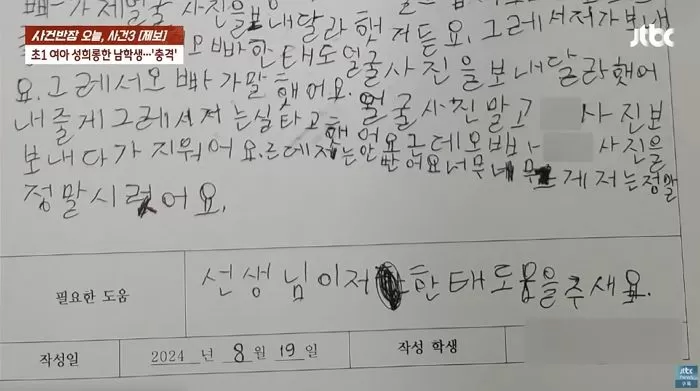 사건반장 오늘, 사건3 [제보]
초1 여아 성희롱한 남학생…'충격'
jtbc
빠가 제얼굴 사진을보내달라 했거든요. 그레서저가보내
오빠한태도얼굴사진을보내달라했어
요. 그레서오빠가말했어요. 얼굴사진말고 사진보
내줄게그레서저는실타고했어요근데오빠 사진을
보내다가지워어요. 근데저는안봤어요너무 게저는정말
정말시럿어요.
필요한 도움
선생님이저한태도움을주새요.
작성일
2024 년 8 월 19 일
작성 학생
jtbc
news
구독